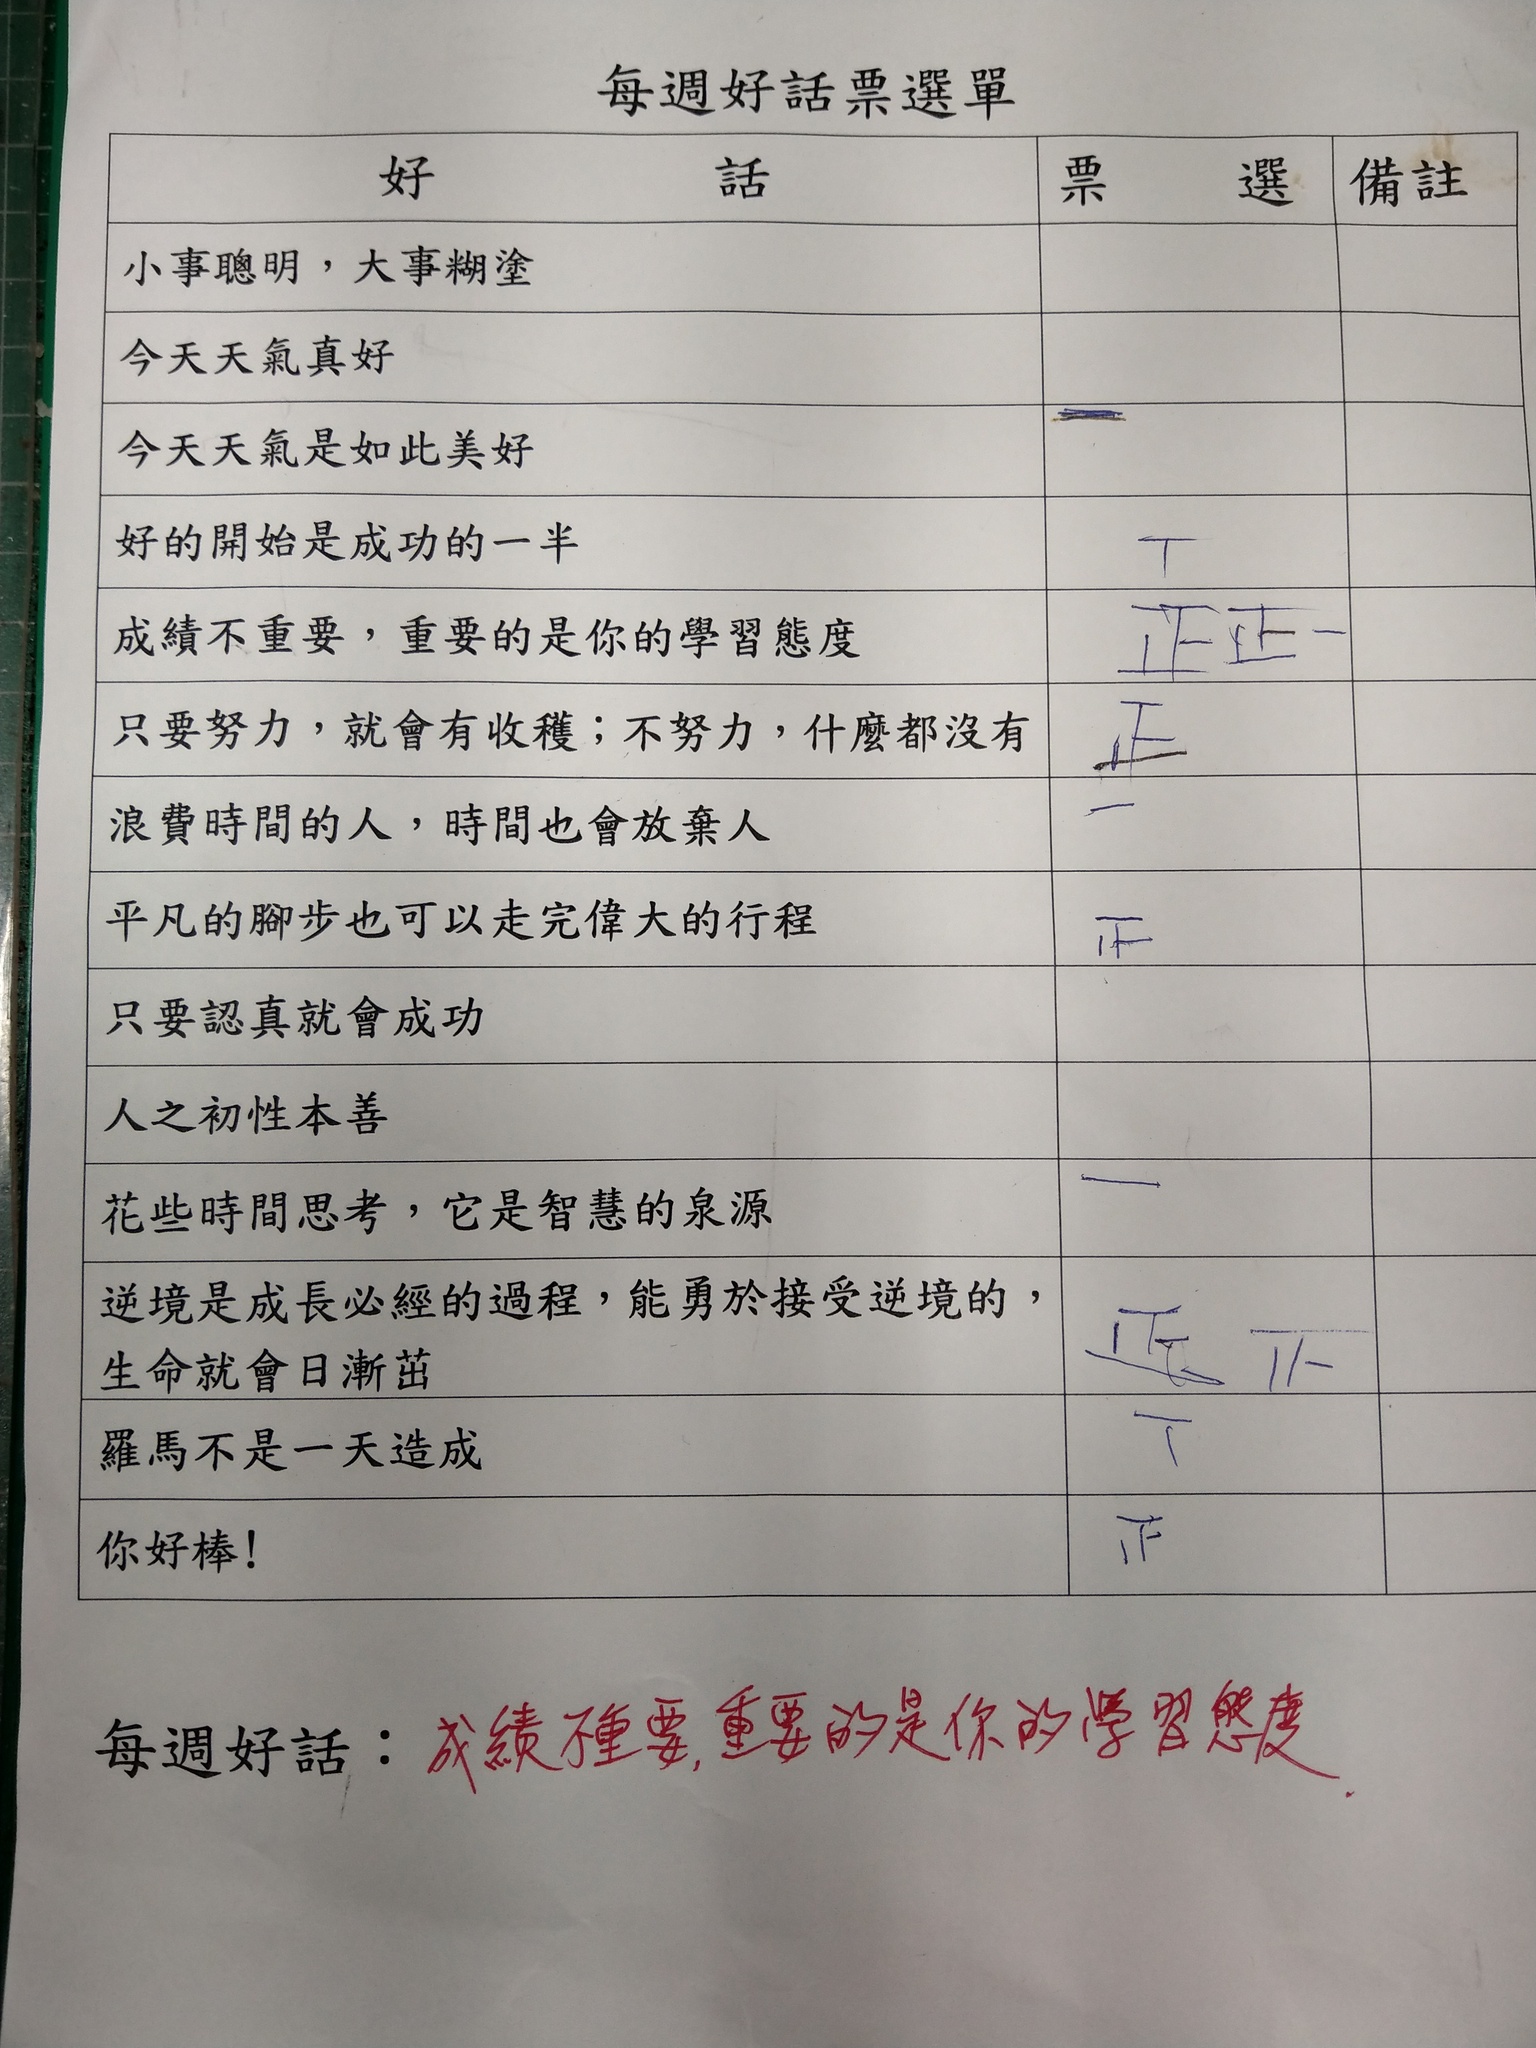 每週好話票選單
好 話 票 選 備註
小事聰明，大事糊塗
今天天氣真好
今天天氣是如此美好 一
好的開始是成功的一半 丅
成績不重要，重要的是你的學習態度 正正一
只要努力，就會有收穫；不努力，什麼都沒有 正
浪費時間的人，時間也會放棄人 一
平凡的腳步也可以走完偉大的行程
只要認真就會成功
人之初性本善
花些時間思考，它是智慧的泉源 一
逆境是成長必經的過程，能勇於接受逆境的，
生命就會日漸茁 正
羅馬不是一天造成 丅
你好棒！
每週好話：成績不重要，重要的是你的學習態度.